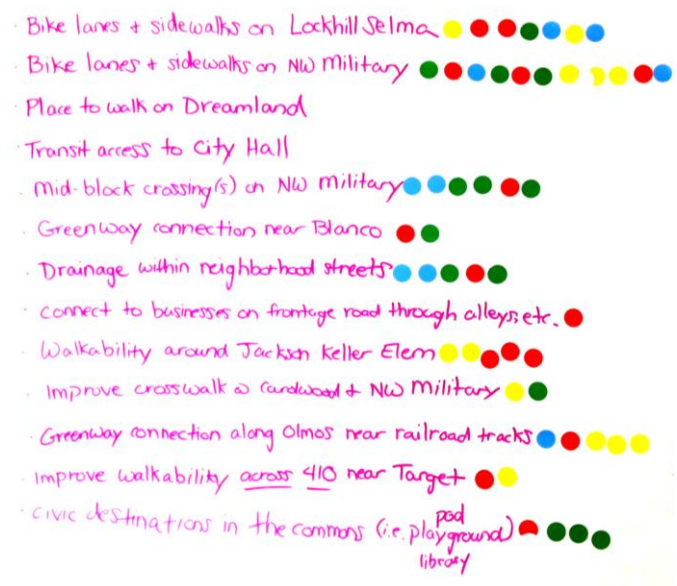 · Bike lanes + sidewalks on Lockhill Selma
· Bike lanes + sidewalks on NW Military
· Place to walk on Dreamland
· Transit access to City Hall
· Mid-block crossing(s) on NW Military
· Greenway connection near Blanco
· Drainage within neighborhood streets
· Connect to businesses on frontage road through alleys, etc.
· Walkability around Jackson Keller Elem
· Improve crosswalk @ Cardwood + NW Military
· Greenway connection along Olmos near railroad tracks
· Improve walkability across 410 near Target
· Civic destinations in the commons (i.e. playground)
pod
library